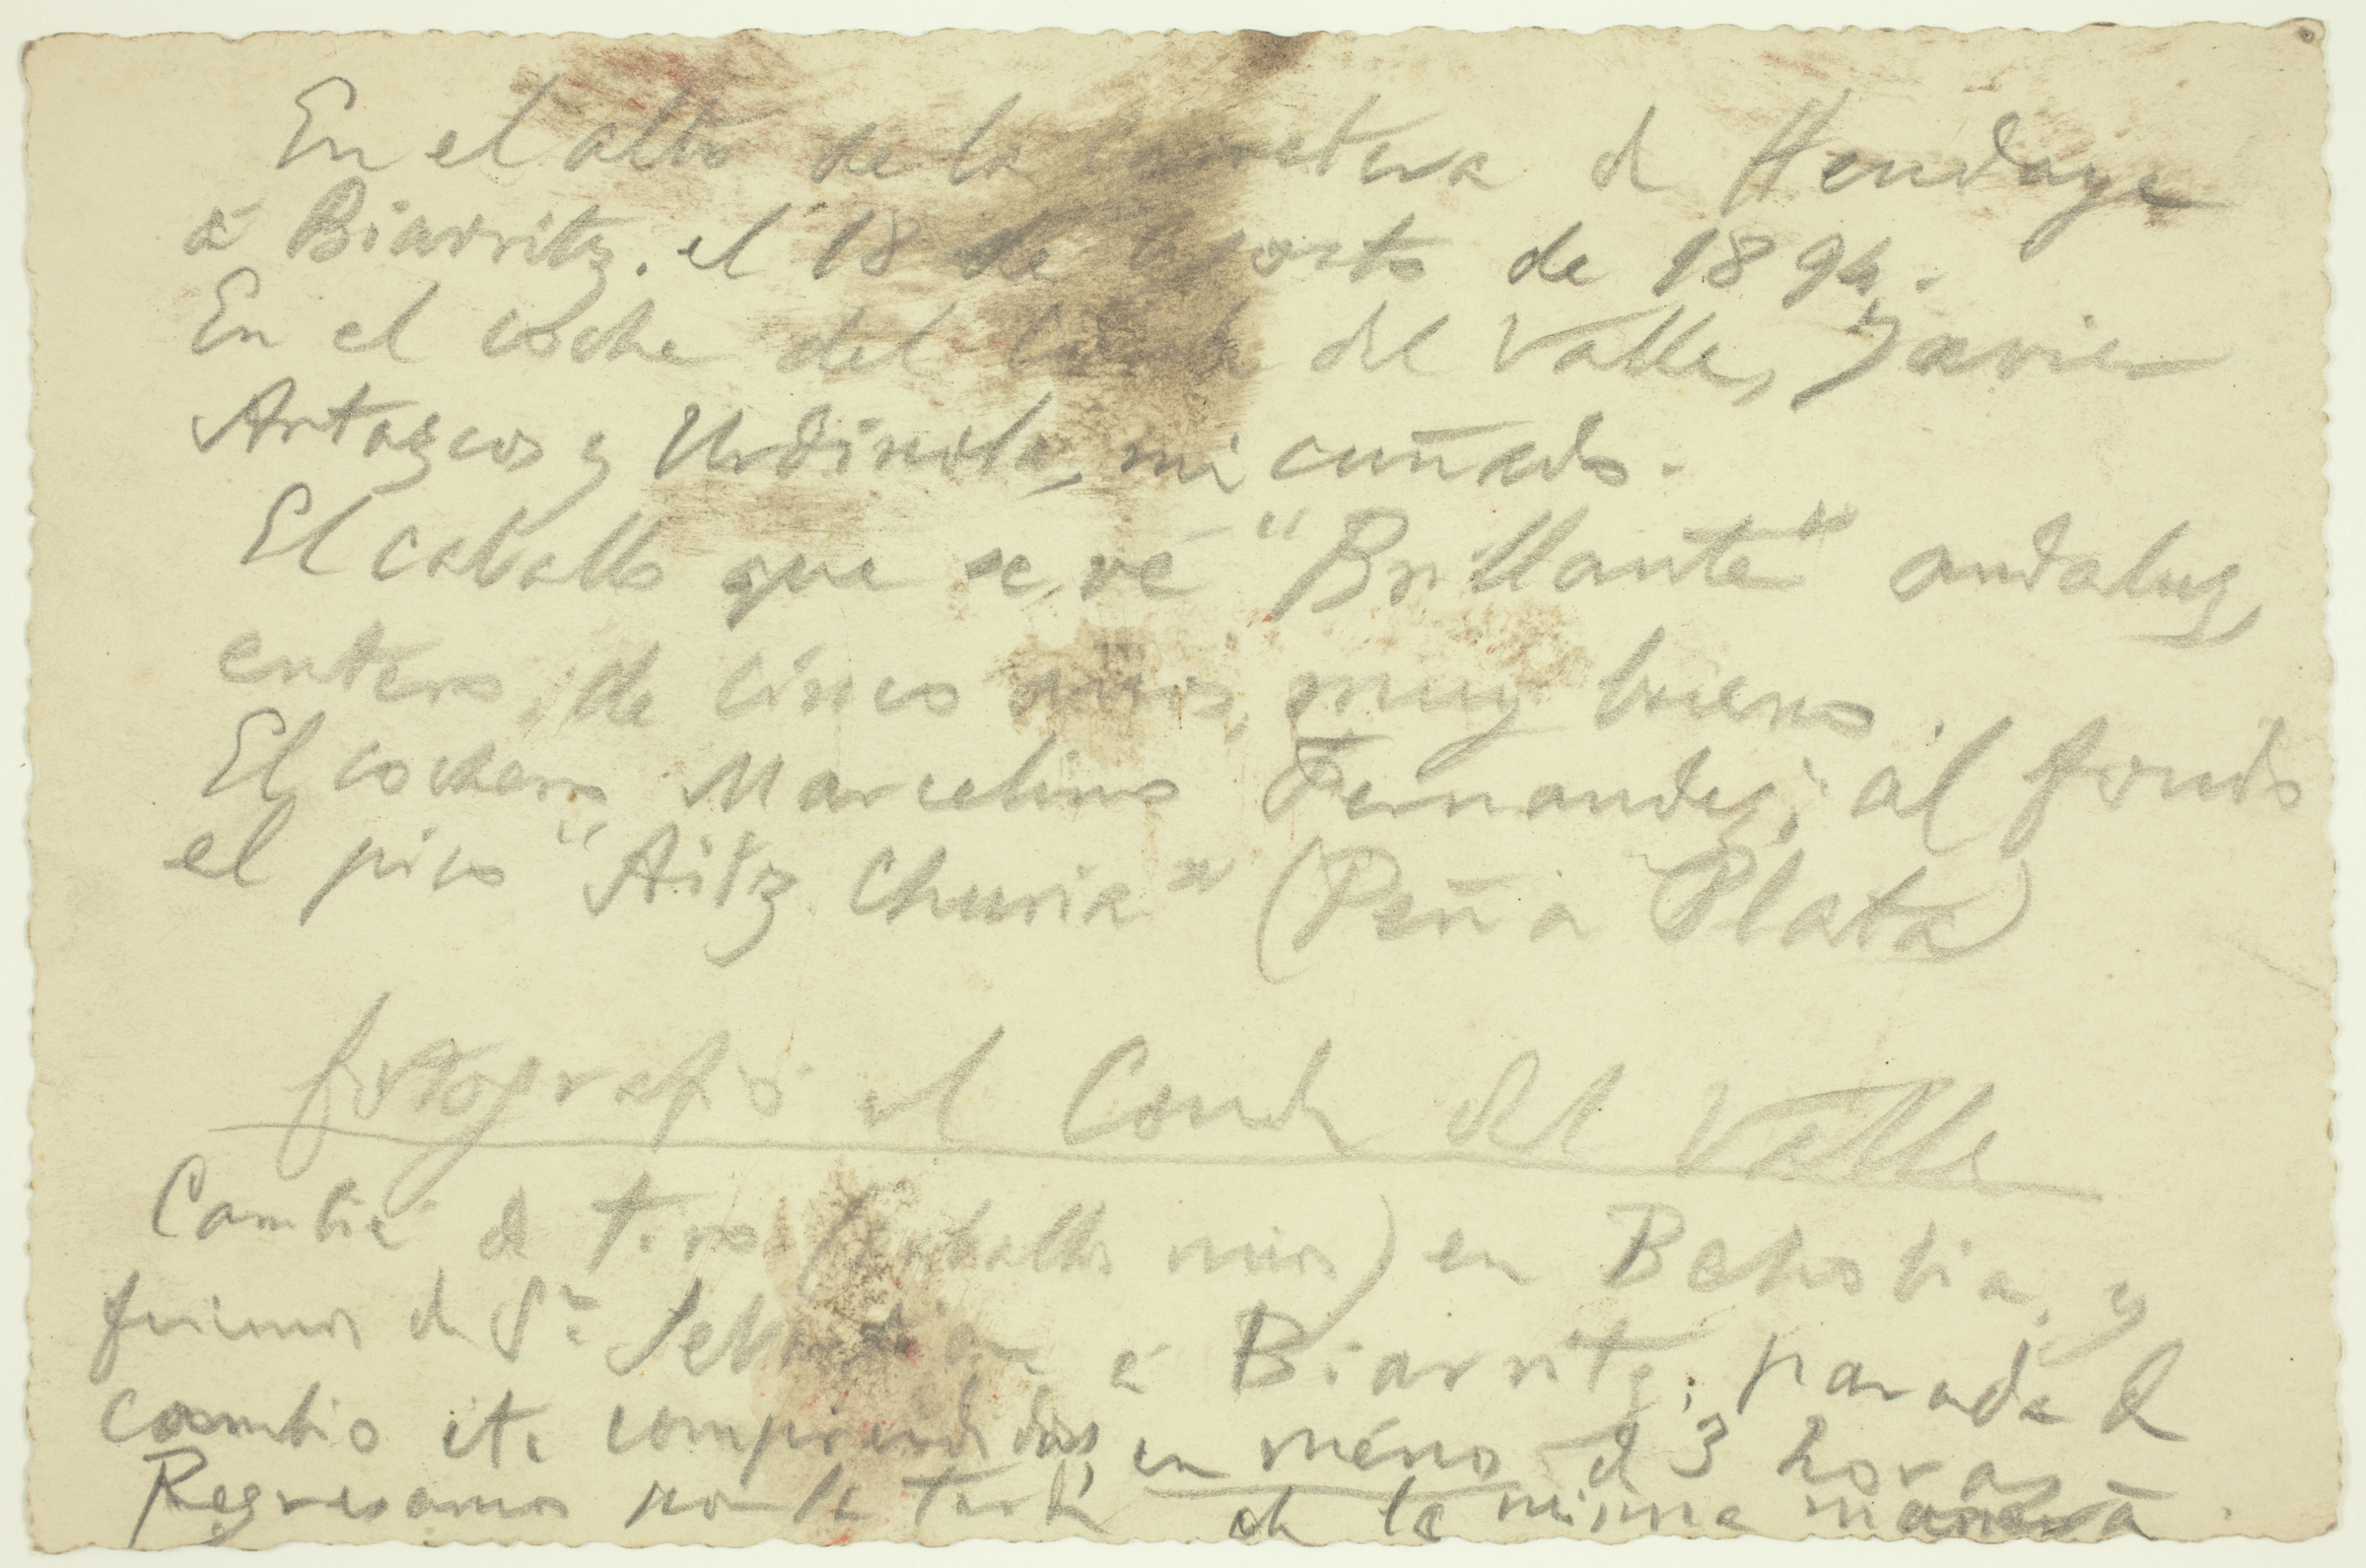 En el alto de la carretera de Hendaye
á Biarritz. el 18 de Agosto de 1894.
En el coche del Conde del Valle, Javier
Artazcos y Urdinola, mi cuñado.
El caballo que se vé "Brillante" andaluz,
entero, de cinco años, muy bueno.
El cochero Marcelino Fernandez; al fondo
el pico "Aitz Churia" (Peña Plata)
fotografió el Conde del Valle
Cambié de tiro (caballos mios) en Behobia, y
fuimos de Sn Sebastian á Biarritz, parada de
cambio etc comprendidas, en ménos de 3 horas
Regresamos por la tarde de la misma manera.